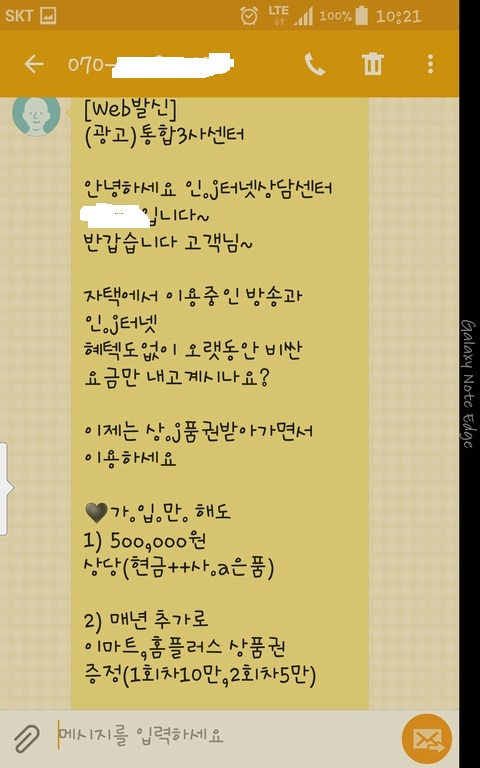 SKT LTE 100% 10:21
070-
[Web발신]
(광고)통합3사센터
안녕하세요 인.j터넷상담센터
입니다~
반갑습니다 고객님~
자택에서 이용중인 방송과
인.j터넷
혜텍도없이 오랫동안 비싼
요금만 내고계시나요?
이제는 상.j품권받아가면서
이용하세요
🖤가.입.만. 해도
1) 500,000원
상당(현금++사.a은품)
2) 매년 추가로
이마트,홈플러스 상품권
증정(1회차10만,2회차5만)
메시지를 입력하세요
Galaxy Note Edge